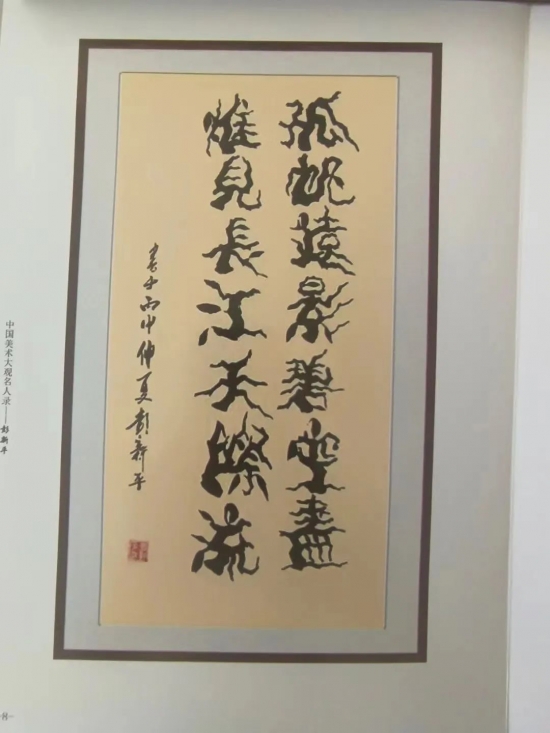 孤帆遠影碧空盡
惟見長江天際流
書于丙申仲夏彭新平
中国美术大观名人录——彭新平